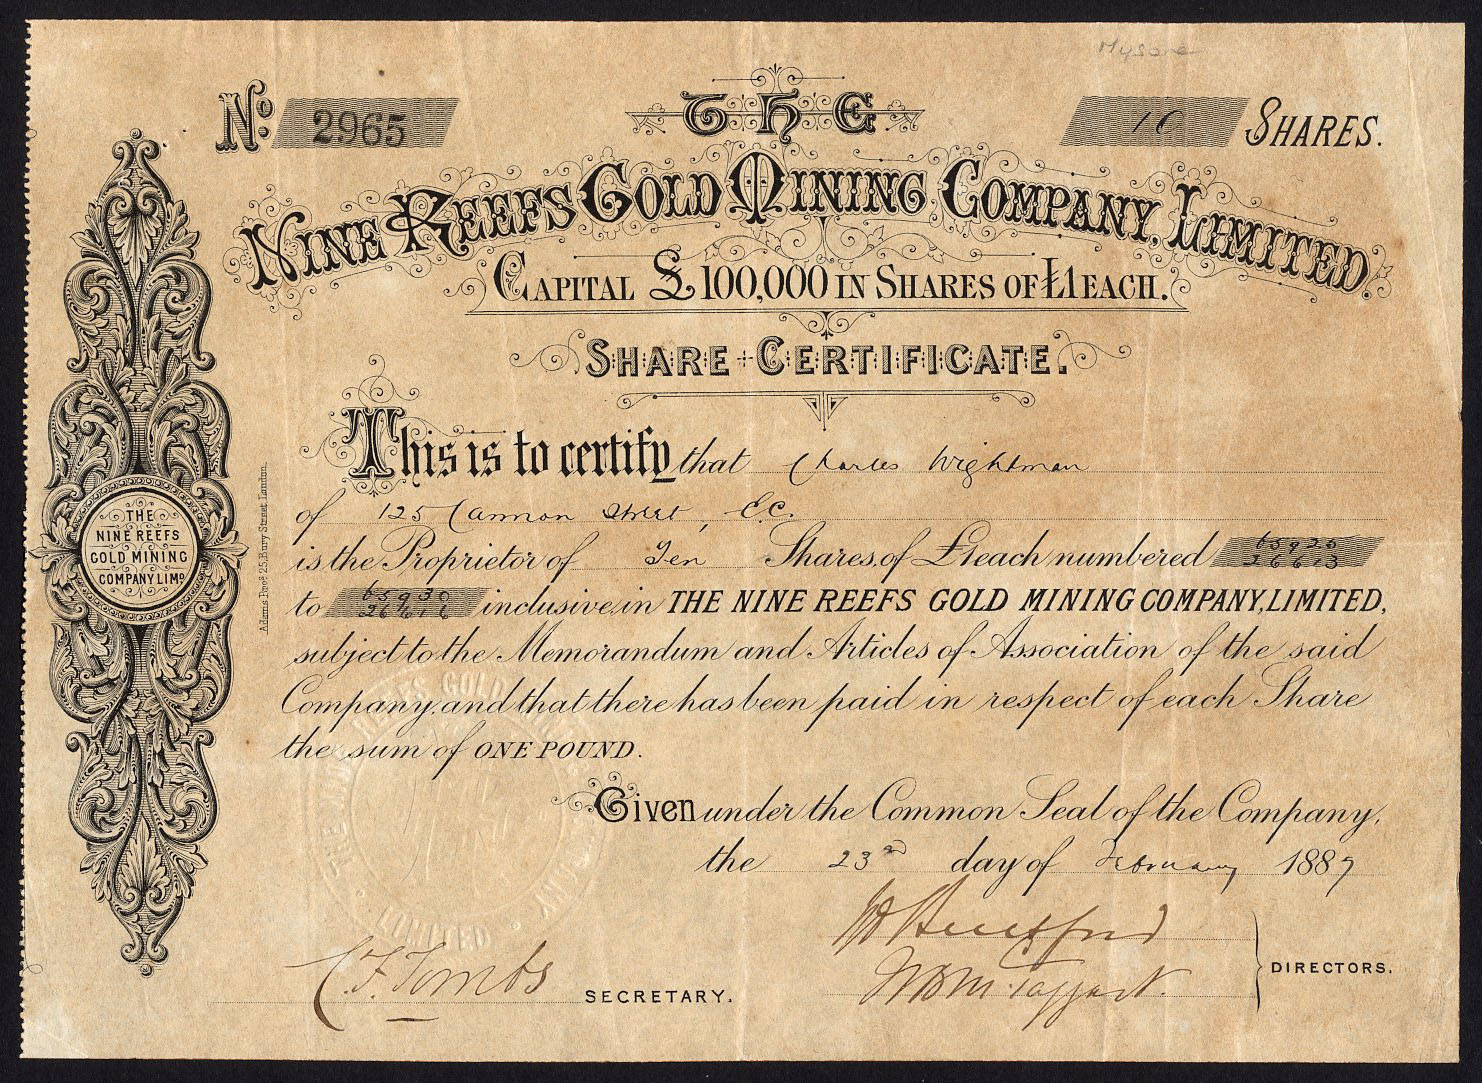 Mysore
No. 2965
10 SHARES.
THE
NINE REEFS GOLD MINING COMPANY, LIMITED.
CAPITAL £100,000 IN SHARES OF £1 EACH.
SHARE CERTIFICATE.
This is to certify that Charles Wightman
of 125 Cannon Street, E.C.
is the Proprietor of Ten Shares of £1 each numbered 65925 26613
to 65930 26616 inclusive, in THE NINE REEFS GOLD MINING COMPANY, LIMITED,
subject to the Memorandum and Articles of Association of the said
Company, and that there has been paid in respect of each Share
the sum of ONE POUND.
Given under the Common Seal of the Company,
the 23rd day of February 1887
C. F. Tombs SECRETARY.
McTaggart
DIRECTORS.
THE
NINE REEFS
GOLD MINING
COMPANY LIMD
Adams Broos 25, Bury Street London.
THE NINE REEFS GOLD MINING COMPANY LIMITED